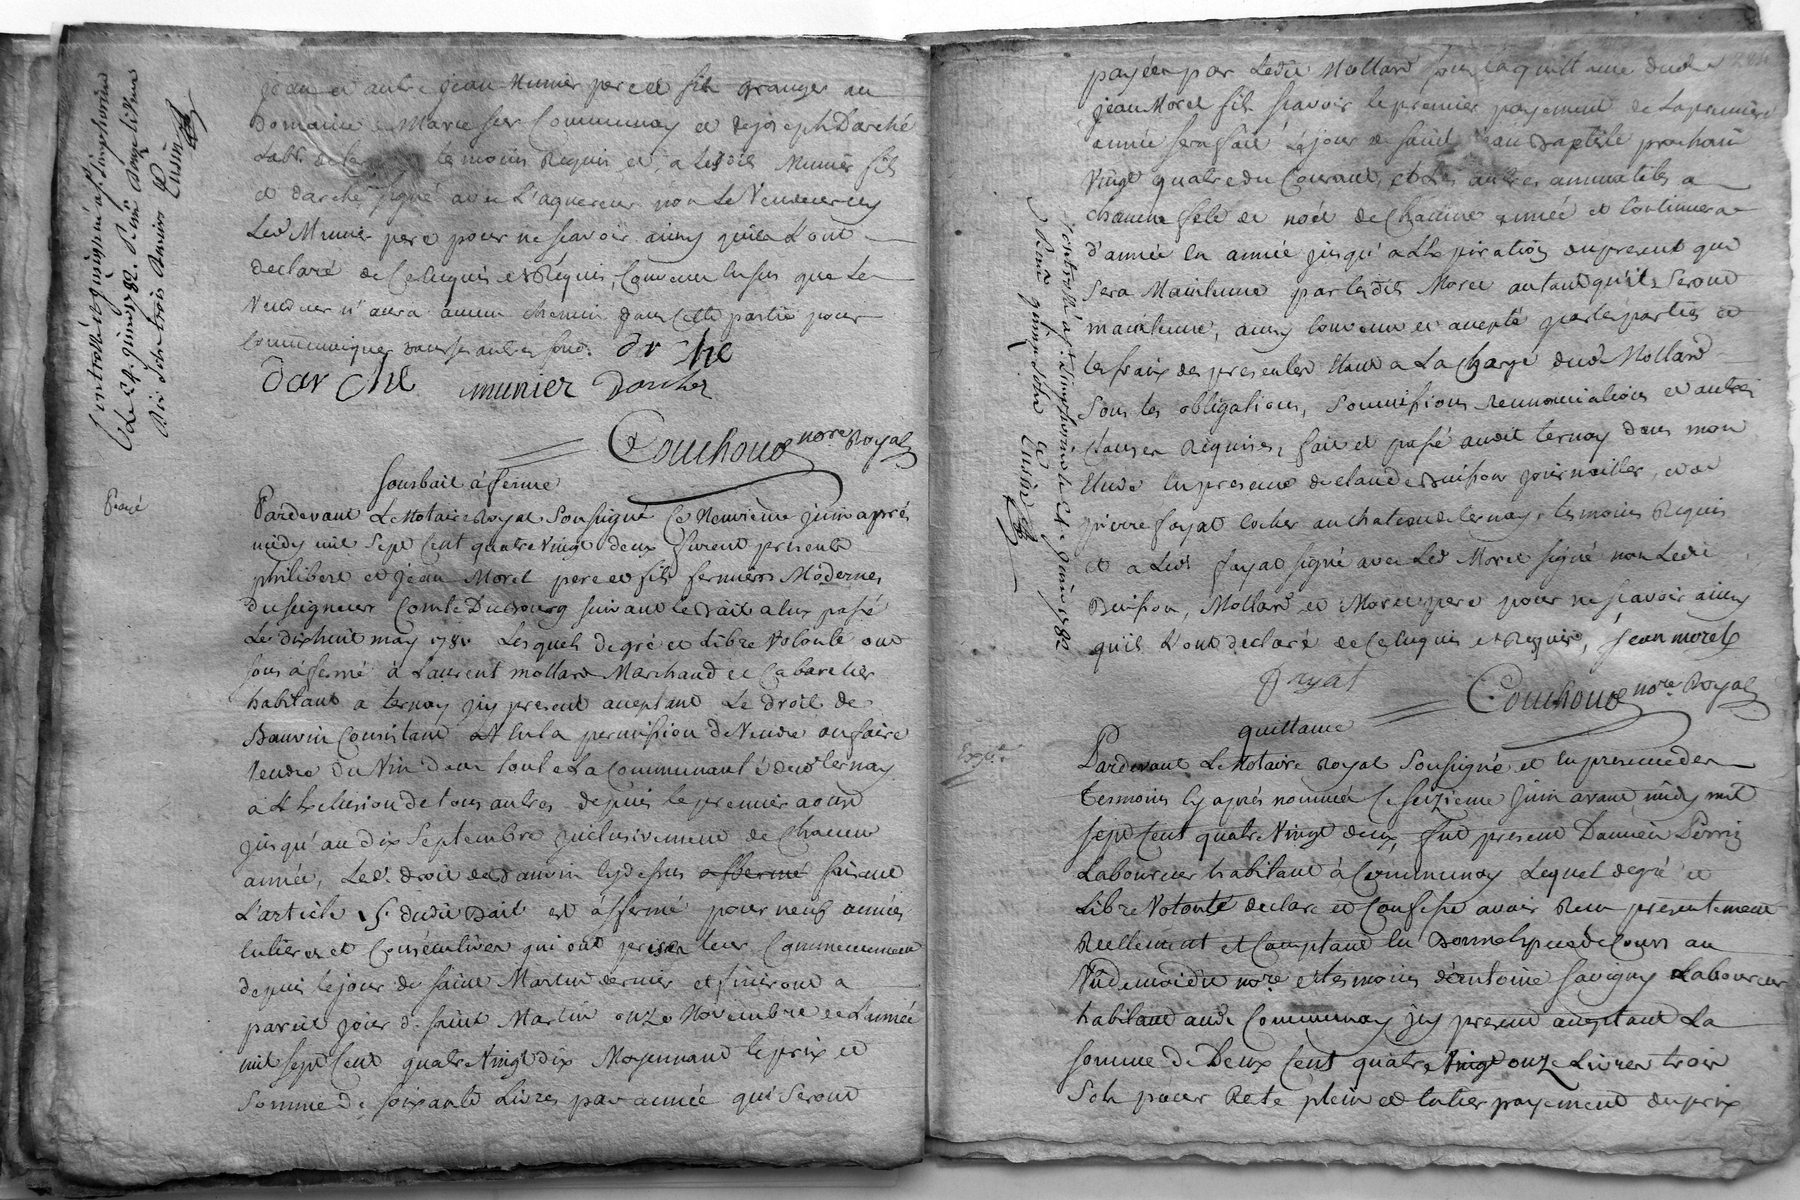 jean et autre jean Munier pere et fils granger au
Domaine de Marie sur Communay et de joseph Darché
temoins Requis et, a Lesdits Munier fils
et darché signé avec L'aquereur non Le Vendeur ny
Led Munier pere pour ne scavoir ainsy quils L'ont
declaré de ce Enquis et Requis, Convenu en sus que Le
Vendeur n'aura aucun chemin dans Cette partie pour
Communiquer dans ses autres fonds. dar che
dar che munier Darcher
Couchoud nore Royal
Sousbail à ferme
Pardevant Le Notaire Royal Soussigné Ce Neuvieme juin aprés
midy mil Sept Cent quatre Vingt deux furent presents
philibert et jean Morel pere et fils fermiers Modernes
du seigneur Comte Dubourg suivant le Bail a lux passé
Le dixhuit may 1781 Lesquels de gré et Libre Volonté ont
sous àfermé à Laurent mollard Marchand et Cabaretier
habitant a ternay jcy present aceptant Le droit de
Banvin Consistant en la permission de Vendre ou faire
Vendre du Vin dans toute La Communauté dud ternay
à L'Exclusion de tous autres depuis le premier aoust
jusqu'au dix Septembre jnclusivement de Chacune
année, Led. droit de banvin cy dessus affermé suivant
L'article 5. dudit Bail est àffermé pour neuf années
Entieres et Consécutives qui ont pris leur Commencement
depuis le jour de saint Martin dernier et finiront a
pareil jour de saint Martin onze Novembre de L'année
mil sept Cent quatre Vingt dix Moyennant le prix et
Somme de soixante Livres par année qui Seront
Controllé et insinué à st. Simphorien
Le 24. juin 1782. Reçu
Cusin
payées par Ledit Mollard sous la quittance dud
jean Morel fils scavoir le premier payement de La premiere
année sera fait Le jour de saint jean Baptiste prochain
Vingt quatre du Courant, et Les autres annuelles a
chacune fete de noël de Chacune année et Continuera
d'année en année jusqu'a L'Expiration du present que
Sera Maintenue par lesdits Morel autant qu'ils Seront
maintenus, ainsy Convenu et accepté par les parties et
les fraix des presentes étant a La Charge dud Mollard
Sous les obligations, Soumissions Renonciations et autres
Clauses Requises, fait et passé audit ternay dans mon
Etude En presence de Claude Buisson journaillier, et de
pierre fayat Cocher au chateau de ternay, temoins Requis
et a Led. fayat signé avec Led Morel signé non Ledit
Buisson, Mollard et Morel pere pour ne scavoir ainsy
quils L'ont declaré de Ce Enquis et Requis, jean morel
fayat Couchoud nore. Royal
Controllé a st. Simphorien Le 24 juin 1782
Reçu quinze sols Cusin
quittance
Pardevant Le Notaire Royal Soussigné et En presence des
temoins Cy aprés nommés Ce seizieme juin avant midy mil
sept Cent quatre Vingt deux, fut present Damien Perrin
Laboureur habitant à Communay Lequel de gré et
Libre Volonté declare et Confesse avoir Reçu presentement
Réellement et Comptant En Bonnes Especes de Cours au
Vû de moidit nore. et temoins d'antoine Savigny Laboureur
habitant aud. Communay jcy present aceptant La
somme de Deux Cent quatre Vingt onze Livres trois
Sols pour Reste plein et Entier payement du prix